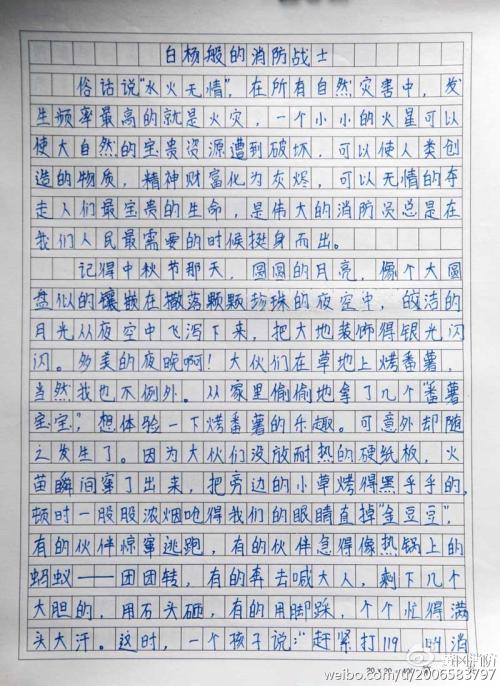 白杨般的消防战士
俗话说“水火无情”,在所有自然灾害中,发
生频率最高的就是火灾,一个小小的火星可以
使大自然的宝贵资源遭到破坏,可以使人类创
造的物质,精神财富化为灰烬,可以无情的夺
走人们最宝贵的生命,是伟大的消防员总是在
我们人民最需要的时候挺身而出。
记得中秋节那天,圆圆的月亮,像个大圆
盘似的镶嵌在撒落颗颗珍珠的夜空中,皎洁的
月光从夜空中飞泻下来,把大地装饰得银光闪
闪。多美的夜晚啊!大伙们在草地上烤番薯,
当然我也不例外。从家里偷偷地拿了几个“番薯
宝宝”,想体验一下烤番薯的乐趣。可意外却随
之发生了。因为大伙们没放耐热的硬纸板,火
苗瞬间窜了出来,把旁边的小草烤得黑乎乎的,
顿时一股股浓烟呛得我们的眼睛直掉“金豆豆”,
有的伙伴惊窜逃跑,有的伙伴急得像热锅上的
蚂蚁——团团转,有的奔去喊大人,剩下几个
大胆的,用石头砸,有的用脚踩,个个忙得满
头大汗。这时,一个孩子说:“赶紧打119,叫消
20×20=400
黄冈消防
weibo.com/u/2006583797